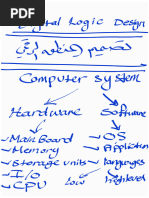 Digital Logic Design
تصميم
Computer system
Hardware Software
- Main Board - OS
- Memory - Application
- Storage units - languages
- I/O Low high level
- CPU